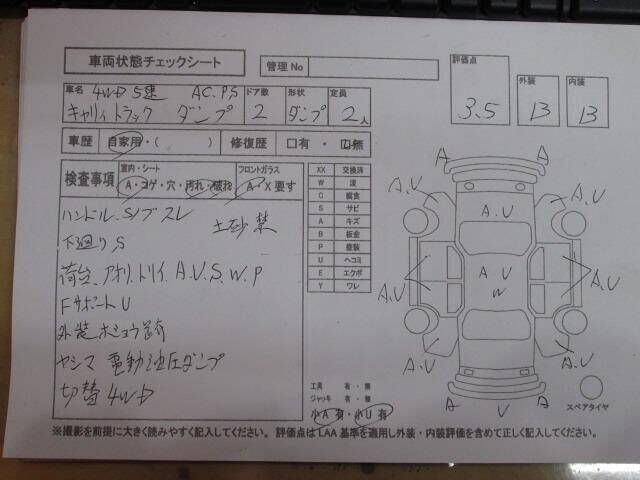 車両状態チェックシート
管理No
評価点
3.5
外装
B
内装
B
車名 4WD 5速 AC.PS
キャリィトラック ダンプ
ドア数
2
形状
ダンプ
定員
2人
車歴 自家用・( ) 修復歴 口有・口無
検査事項
室内・シート
A・コゲ・穴・汚れ・破れ
フロントガラス
A・X要す
ハンドル.S/ブスレ 土砂禁
下廻りS
荷台.アオリ.トリイ.A.U.S.W.P
FサポートU
外装ホショウ
ヤシマ 電動油圧ダンプ
切替4WD
XX 交換済
W 波
C 腐食
S サビ
A キズ
B 板金
P 塗装
U ヘコミ
E エクボ
Y ワレ
工具 有・無
ジャッキ 有・無
小A有・小U有
A
A
A.U
A.U
A.U
A.U
A.U
W
A.U
A.U
A.U
A
U
A
スペアタイヤ
※撮影を前提に大きく読みやすく記入してください。 評価点はLAA基準を適用し外装・内装評価を含めて正しく記入してください。